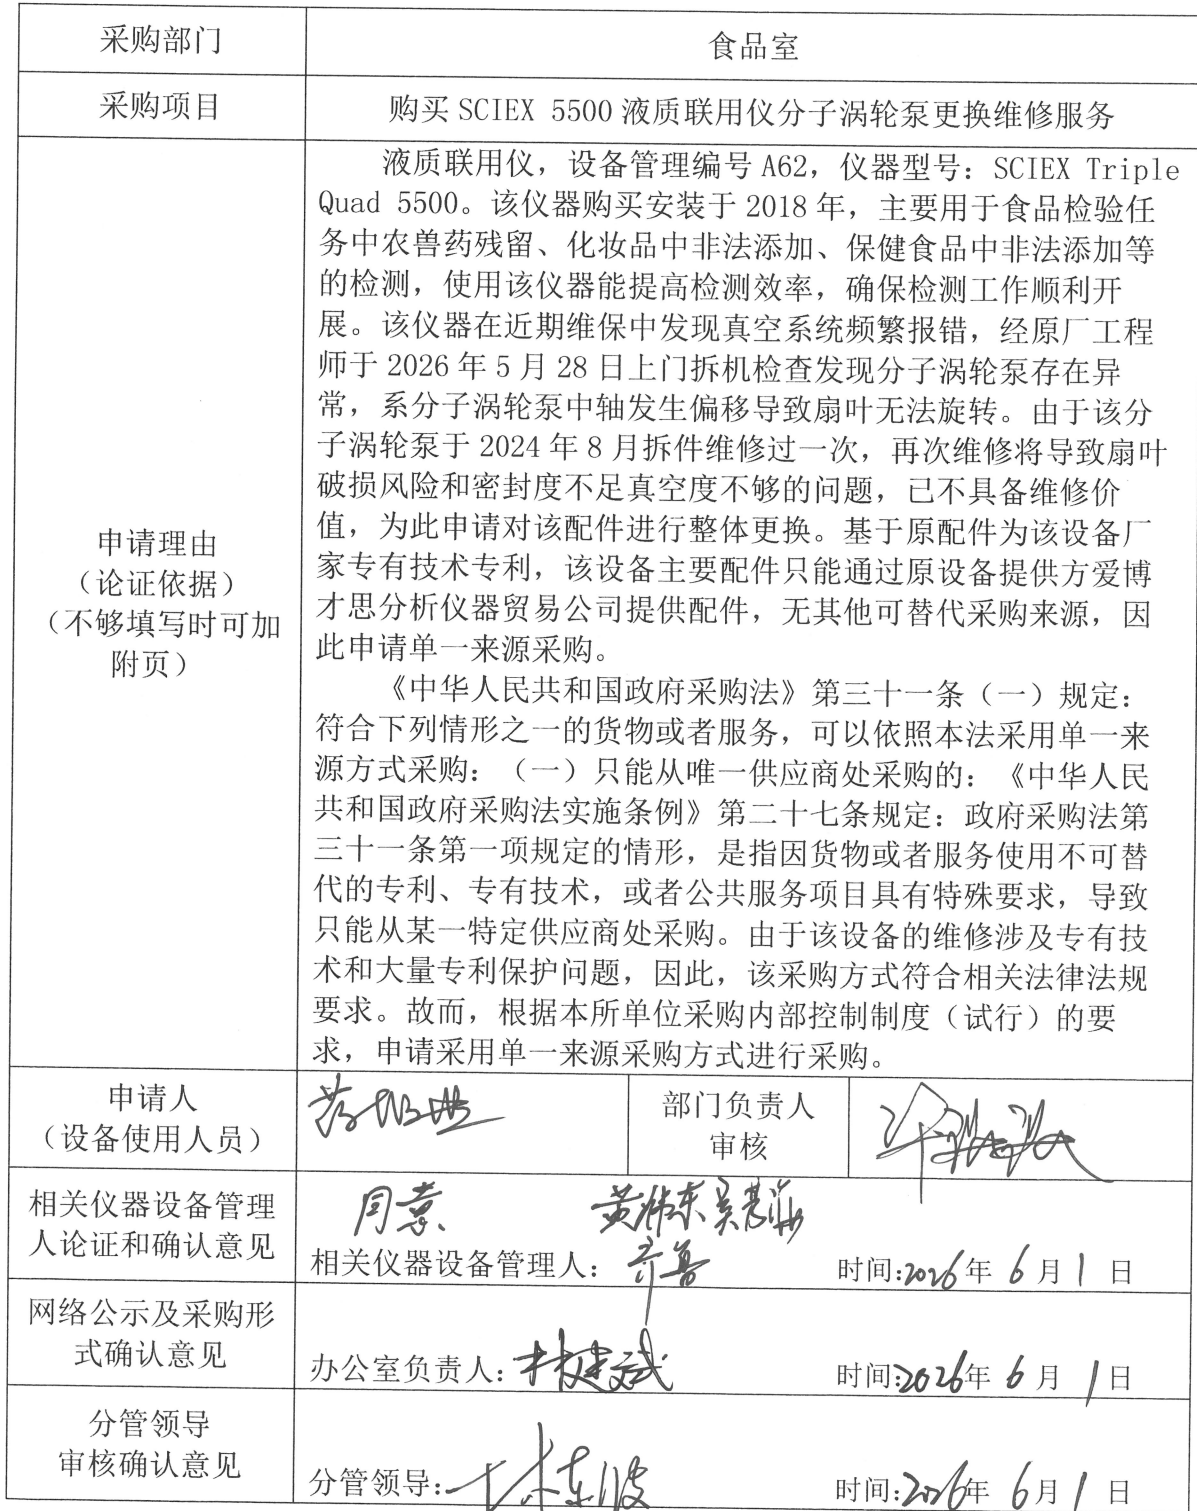 采购部门
食品室
采购项目
购买 SCIEX 5500 液质联用仪分子涡轮泵更换维修服务
申请理由
（论证依据）
（不够填写时可加
附页）
液质联用仪，设备管理编号 A62，仪器型号：SCIEX Triple
Quad 5500。该仪器购买安装于 2018 年，主要用于食品检验任
务中农兽药残留、化妆品中非法添加、保健食品中非法添加等
的检测，使用该仪器能提高检测效率，确保检测工作顺利开
展。该仪器在近期维保中发现真空系统频繁报错，经原厂工程
师于 2026 年 5 月 28 日上门拆机检查发现分子涡轮泵存在异
常，系分子涡轮泵中轴发生偏移导致扇叶无法旋转。由于该分
子涡轮泵于 2024 年 8 月拆件维修过一次，再次维修将导致扇叶
破损风险和密封度不足真空度不够的问题，已不具备维修价
值，为此申请对该配件进行整体更换。基于原配件为该设备厂
家专有技术专利，该设备主要配件只能通过原设备提供方爱博
才思分析仪器贸易公司提供配件，无其他可替代采购来源，因
此申请单一来源采购。
《中华人民共和国政府采购法》第三十一条（一）规定：
符合下列情形之一的货物或者服务，可以依照本法采用单一来
源方式采购：（一）只能从唯一供应商处采购的：《中华人民
共和国政府采购法实施条例》第二十七条规定：政府采购法第
三十一条第一项规定的情形，是指因货物或者服务使用不可替
代的专利、专有技术，或者公共服务项目具有特殊要求，导致
只能从某一特定供应商处采购。由于该设备的维修涉及专有技
术和大量专利保护问题，因此，该采购方式符合相关法律法规
要求。故而，根据本所单位采购内部控制制度（试行）的要
求，申请采用单一来源采购方式进行采购。
申请人
（设备使用人员）
部门负责人
审核
相关仪器设备管理
人论证和确认意见
同意 黄伟东
相关仪器设备管理人： 时间:2026年 6 月 1 日
网络公示及采购形
式确认意见
办公室负责人:林建斌 时间:2026年 6 月 1 日
分管领导
审核确认意见
分管领导: 时间:2026年 6 月 1 日